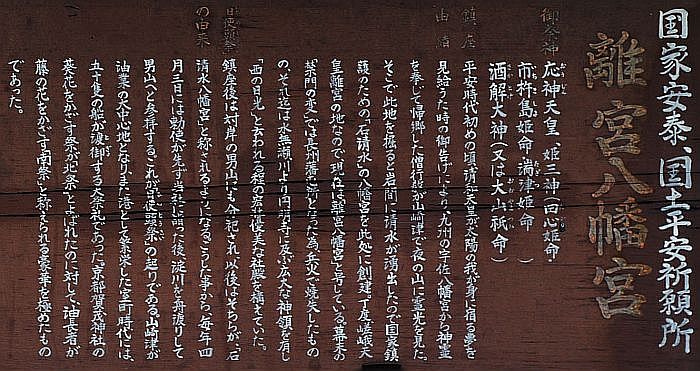 国家安泰、国土平安祈願所
離宮八幡宮
御祭神
応神天皇、姫三神(田心姫命・
市杵島姫命・湍津姫命)
酒解大神(又は大山祇命)
鎮座
由緒
平安時代初めの頃清和天皇が太陽の我が身に宿る夢を
見給うた時の御告げにより、九州の宇佐八幡宮から神霊
を奉じて帰郷した僧行教が山崎津で夜の山に霊光を見た。
そこで此地を掘ると岩間に清水が湧出たので国家鎮
護のため「石清水の八幡宮」を此処に創建、丁度嵯峨天
皇離宮の地なので、現在は離宮八幡宮と号している。幕末の
「禁門の変」では長州藩屯所となった為、兵火で焼失したもの
の、それ迄は水無瀬川より円明寺に及ぶ広大な神領を有し
「西の日光」と云われる程の宏壮優美な社殿を構えていた。
日使頭祭
の由来
鎮座後は対岸の男山にも分祀され、以後はそちらが、石
清水八幡宮と称されるようになる。こうした事から、毎年四
月三日には勅使が先ず当社に詣た後、淀川を舟渡りして
男山へと参拝する。これが日使頭祭の起りである。山崎津が
油業の大中心地となり、また港として象栄した室町時代には、
五十隻の船が渡御する大祭礼であった。京都賀茂神社の
葵花をかざす祭が北祭とよばれたのに対して、油長者が
藤の花をかざす南祭と称えられる豪華を極めたもの
であった。